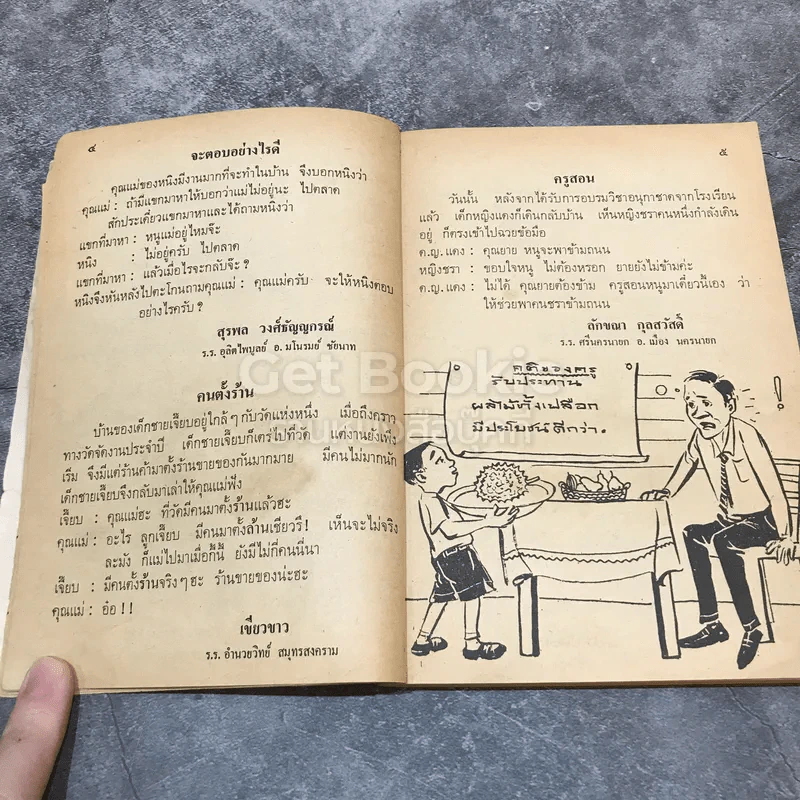 ๔
จะตอบอย่างไรดี
คุณแม่ของหนิงมีงานมากที่จะทำในบ้าน จึงบอกหนิงว่า
คุณแม่ : ถ้ามีแขกมาหาให้บอกว่าแม่ไม่อยู่นะ ไปตลาด
สักประเดี๋ยวแขกมาหาและได้ถามหนิงว่า
แขกที่มาหา : หนูแม่อยู่ไหมจ๊ะ
หนิง : ไม่อยู่ครับ ไปตลาด
แขกที่มาหา : แล้วเมื่อไรจะกลับจ๊ะ ?
หนิงจึงหันหลังไปตะโกนถามคุณแม่ : คุณแม่ครับ จะให้หนิงตอบ
อย่างไรครับ ?
สุรพล วงศ์ธัญญกรณ์
ร.ร. อุลิตไพบูลย์ อ. มโนรมย์ ชัยนาท
คนตั้งร้าน
บ้านของเด็กชายเจี๊ยบอยู่ใกล้ ๆ กับวัดแห่งหนึ่ง เมื่อถึงคราว
ทางวัดจัดงานประจำปี เด็กชายเจี๊ยบก็เตร่ไปที่วัด แต่งานยังเพิ่ง
เริ่ม จึงมีแต่ร้านค้ามาตั้งร้านขายของกันมากมาย มีคนไม่มากนัก
เด็กชายเจี๊ยบจึงกลับมาเล่าให้คุณแม่ฟัง
เจี๊ยบ : คุณแม่ฮะ ที่วัดมีคนมาตั้งร้านแล้วฮะ
คุณแม่ : อะไร ลูกเจี๊ยบ มีคนมาตั้งล้านเชียวรึ ! เห็นจะไม่จริง
ละมัง ก็แม่ไปมาเมื่อกี้นี้ ยังมีไม่กี่คนนี่นา
เจี๊ยบ : มีคนตั้งร้านจริง ๆ ฮะ ร้านขายของน่ะฮะ
คุณแม่ : อ๋อ ! !
เขียวขาว
ร.ร. อำนวยวิทย์ สมุทรสงคราม
๕
ครูสอน
วันนั้น หลังจากได้รับการอบรมวิชาอนุกาชาดจากโรงเรียน
แล้ว เด็กหญิงแดงก็เดินกลับบ้าน เห็นหญิงชราคนหนึ่งกำลังเดิน
อยู่ ก็ตรงเข้าไปฉวยข้อมือ
ด.ญ. แดง : คุณยาย หนูจะพาข้ามถนน
หญิงชรา : ขอบใจหนู ไม่ต้องหรอก ยายยังไม่ข้ามค่ะ
ด.ญ. แดง : ไม่ได้ คุณยายต้องข้าม ครูสอนหนูมาเดี๋ยวนี้เอง ว่า
ให้ช่วยพาคนชราข้ามถนน
ลักขณา กุลสวัสดิ์
ร.ร. ศรีนครนายก อ. เมือง นครนายก
คติของครู
รับประทาน
ผลไม้ทั้งเปลือก
มีประโยชน์ดีกว่า.
!
Get Bookie